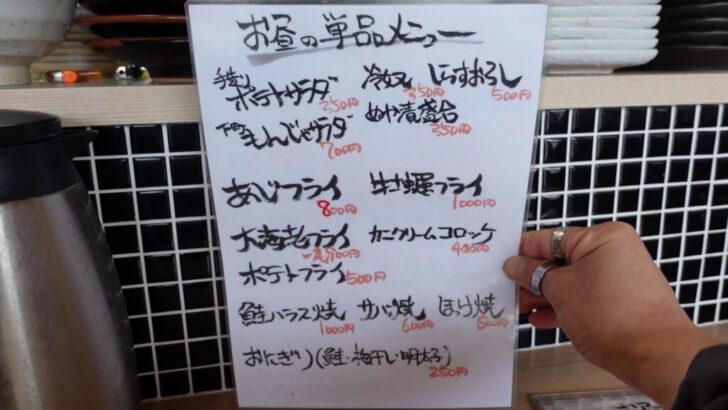 お昼の単品メニュー
手造り ポテトサラダ 350円 冷奴 350円 しらすおろし 500円
下町 もんじゃサラダ 700円 ぬか漬盛合 350円
あじフライ 800円 牡蠣フライ 1000円
大海老フライ 一尾900円 カニクリームコロッケ 400円
ポテトフライ 500円
鮭ハラス焼 1000円 サバ焼 600円 ほっけ焼 800円
おにぎり(鮭・梅干し・明太子) 250円